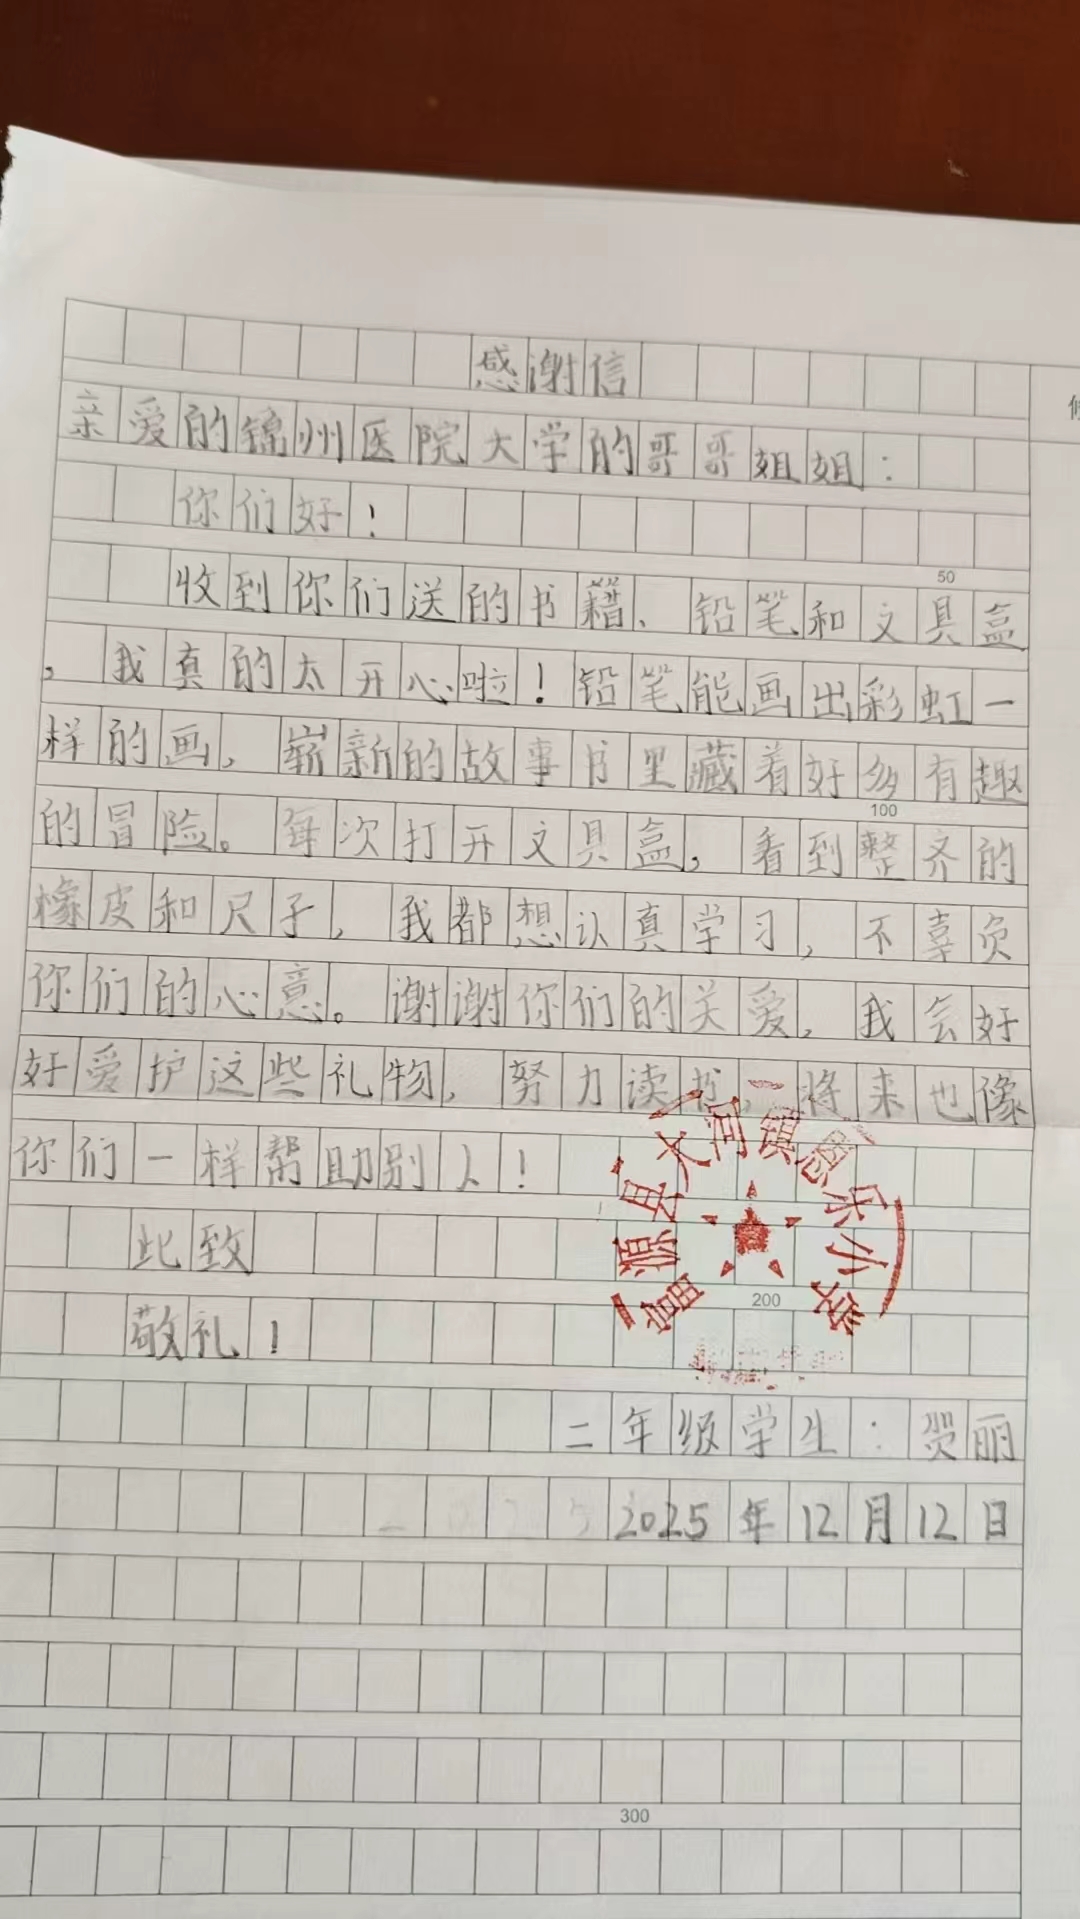 感谢信
亲爱的锦州医院大学的哥哥姐姐：
你们好！
收到你们送的书籍、铅笔和文具盒
，我真的太开心啦！铅笔能画出彩虹一
样的画，崭新的故事书里藏着好多有趣
的冒险。每次打开文具盒，看到整齐的
橡皮和尺子，我都想认真学习，不辜负
你们的心意。谢谢你们的关爱，我会好
好爱护这些礼物，努力读书，将来也像
你们一样帮助别人！
此致
敬礼！
二年级学生：贺丽
2025年12月12日
富源县大河镇恩乐小学
50
100
200
300